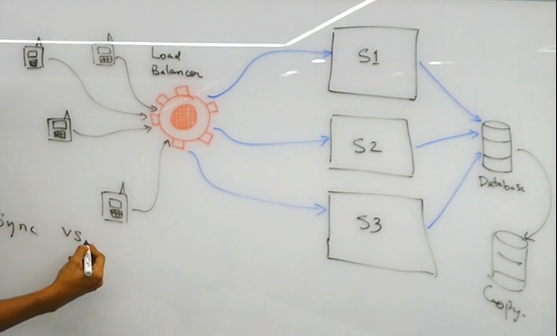 Load
Balancer
S1
S2
S3
Database
Copy.
Sync vs